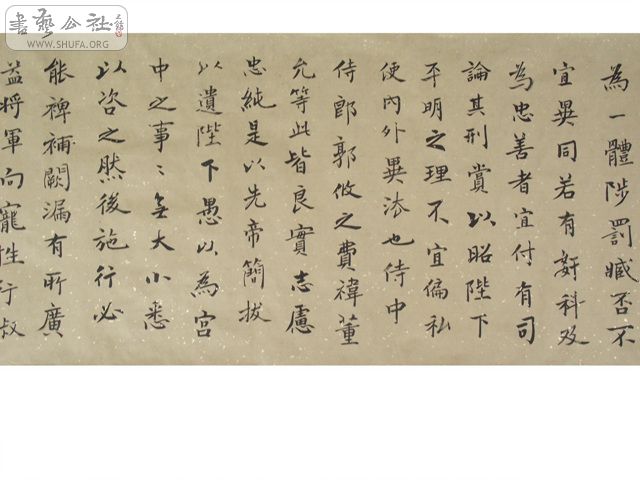 書藝公社
WWW.SHUFA.ORG
為一體陟罰臧否不
宜異同若有奸科及
為忠善者宜付有司
論其刑賞以昭陛下
平明之理不宜偏私
使內外異法也侍中
侍郎郭攸之費禕董
允等此皆良實志慮
忠純是以先帝簡拔
以遺陛下愚以為宮
中之事〻無大小悉
以咨之然後施行必
能裨補闕漏有所廣
益將軍向寵性行淑